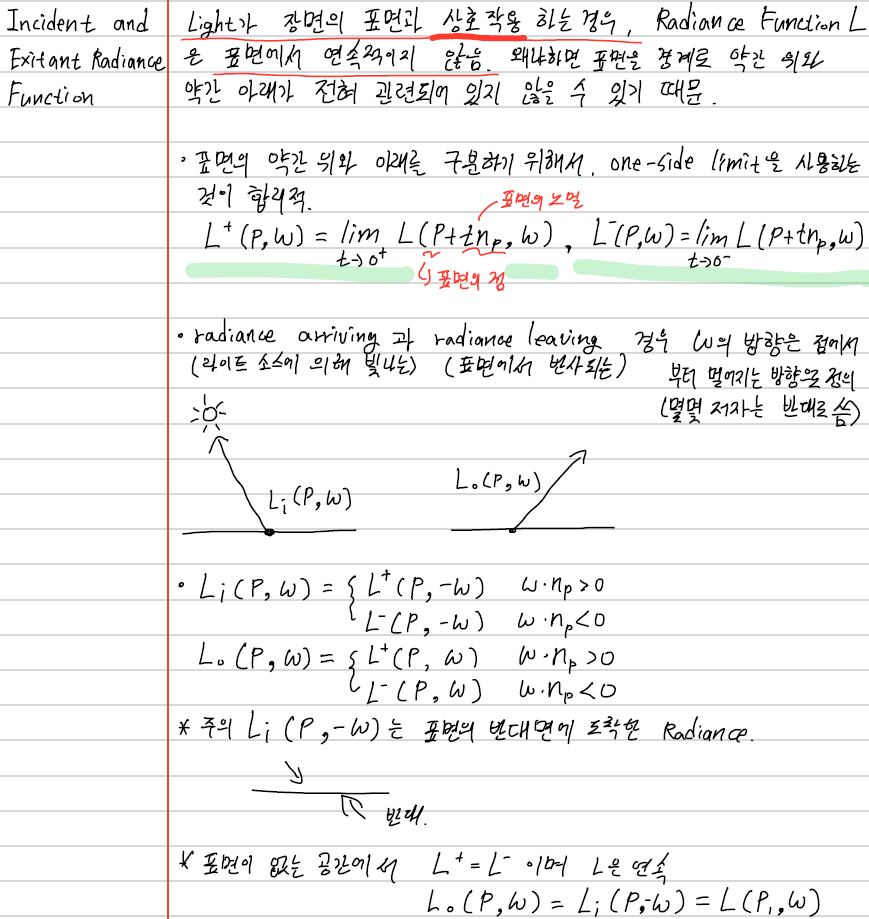 Incident and
Exitant Radiance
Function
Light가 장면의 표면과 상호작용 하는 경우, Radiance Function L
은 표면에서 연속적이지 않음. 왜냐하면 표면을 경계로 약간 위와
약간 아래가 전혀 관련되어 있지 않을 수 있기 때문.
· 표면의 약간 위와 아래를 구분하기 위해서, one-side limit을 사용하는
것이 합리적.
표면의 노멀
L⁺(P,ω) = lim t→0⁺ L(P+tnₚ,ω), L⁻(P,ω) = lim t→0⁻ L(P+tnₚ,ω)
표면의 점
· radiance arriving 과 radiance leaving 경우 ω의 방향은 점에서
(라이트 소스에 의해 빛나는) (표면에서 반사되는) 부터 멀어지는 방향으로 정의
(몇몇 저자는 반대로 씀)
Lᵢ(P,ω)
Lₒ(P,ω)
· Lᵢ(P,ω) = { L⁺(P,-ω) ω·nₚ>0
L⁻(P,-ω) ω·nₚ<0
Lₒ(P,ω) = { L⁺(P,ω) ω·nₚ>0
L⁻(P,ω) ω·nₚ<0
* 주의 Lᵢ(P,-ω)는 표면의 반대면에 도착한 Radiance.
반대.
* 표면이 없는 공간에서 L⁺=L⁻ 이며 L은 연속
Lₒ(P,ω) = Lᵢ(P,-ω) = L(P,ω)